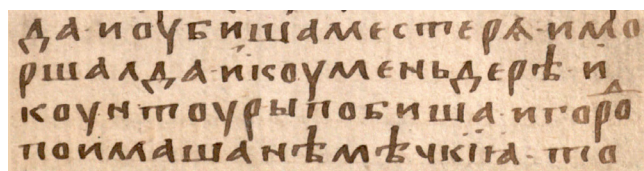 да·и оубишаместерѧ·имо
ршалда·и҆коуменьдерѣ·и҆
коунтоурыпобиша·игоро̑ⷣ
поимашанѣмѣчкіꙗ·то